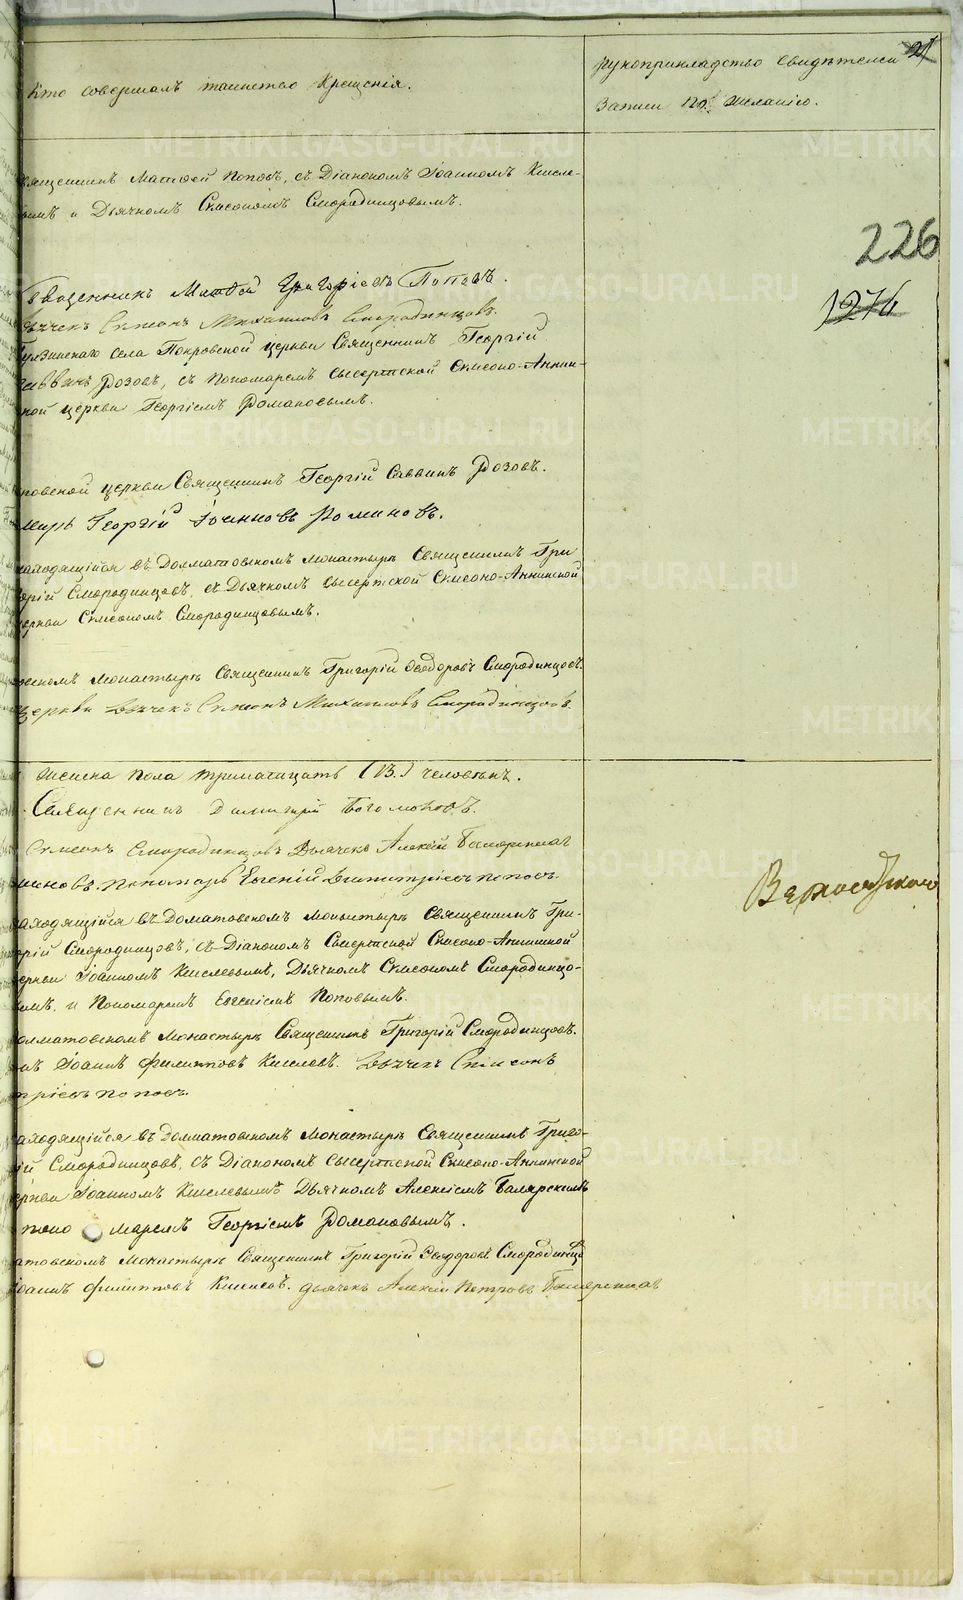 Кто совершалъ таинство Крещенія.
рукоприкладство свидѣтелей
записи по желанію.
21
священникъ Матвей Поповъ, съ Діакономъ Іоанномъ Кисле-
вымъ и Дьячкомъ Симеономъ Смородинцовымъ.
226
Священникъ Матвей Григоріевъ Поповъ.
1274
Дьячекъ Симеонъ Михаиловъ Смородинцовъ.
села Покровской церкви Священникъ Георгій
Саввинъ Розовъ, съ пономаремъ Сысертской Симеоно-Аннин-
ской церкви Георгіемъ Романовымъ.
Покровской церкви Священникъ Георгій Саввинъ Розовъ.
Георгій Іоанновъ Романовъ.
находящійся въ Долматовскомъ монастырѣ Священникъ Гри
горій Смородинцовъ, съ Дьячкомъ Сысертской Симеоно-Аннинской
церкви Симеономъ Смородинцовымъ.
монастырѣ Священникъ Григорій Ѳеодоровъ Смородинцовъ.
церкви Дьячекъ Симеонъ Михаиловъ Смородинцовъ.
женска пола тринатцать (13.) человѣкъ.
Священникъ Димитрій Богомоловъ.
Симеонъ Смородинцовъ Дьячекъ Алексій
Пономарь Евгеній Димитріевъ Поповъ.
находящійся въ Долматовскомъ монастырѣ Священникъ Гри-
горій Смородинцовъ, съ Діакономъ Сысертской Симеоно-Аннинской
церкви Іоанномъ Киселевымъ, Дьячкомъ Симеономъ Смородинцо-
вымъ, и Пономаремъ Евгеніемъ Поповымъ.
Долматовскомъ монастырѣ Священникъ Григорій Смородинцовъ.
Іоаннъ Филипповъ Киселевъ. Дьячекъ Симеонъ
Димитріевъ Поповъ.
находящійся въ Долматовскомъ монастырѣ Священникъ Григо-
рій Смородинцовъ, съ Діакономъ Сысертской Симеоно-Аннинской
церкви Іоанномъ Киселевымъ Дьячкомъ Алексіемъ
поно марем Георгіемъ Романовымъ.
Долматовскомъ монастырѣ Священникъ Григорій Ѳеодоровъ Смородинцовъ
Іоаннъ Филипповъ Киселевъ. Дьячекъ Алексій Петровъ
METRIKI.GASO-URAL.RU